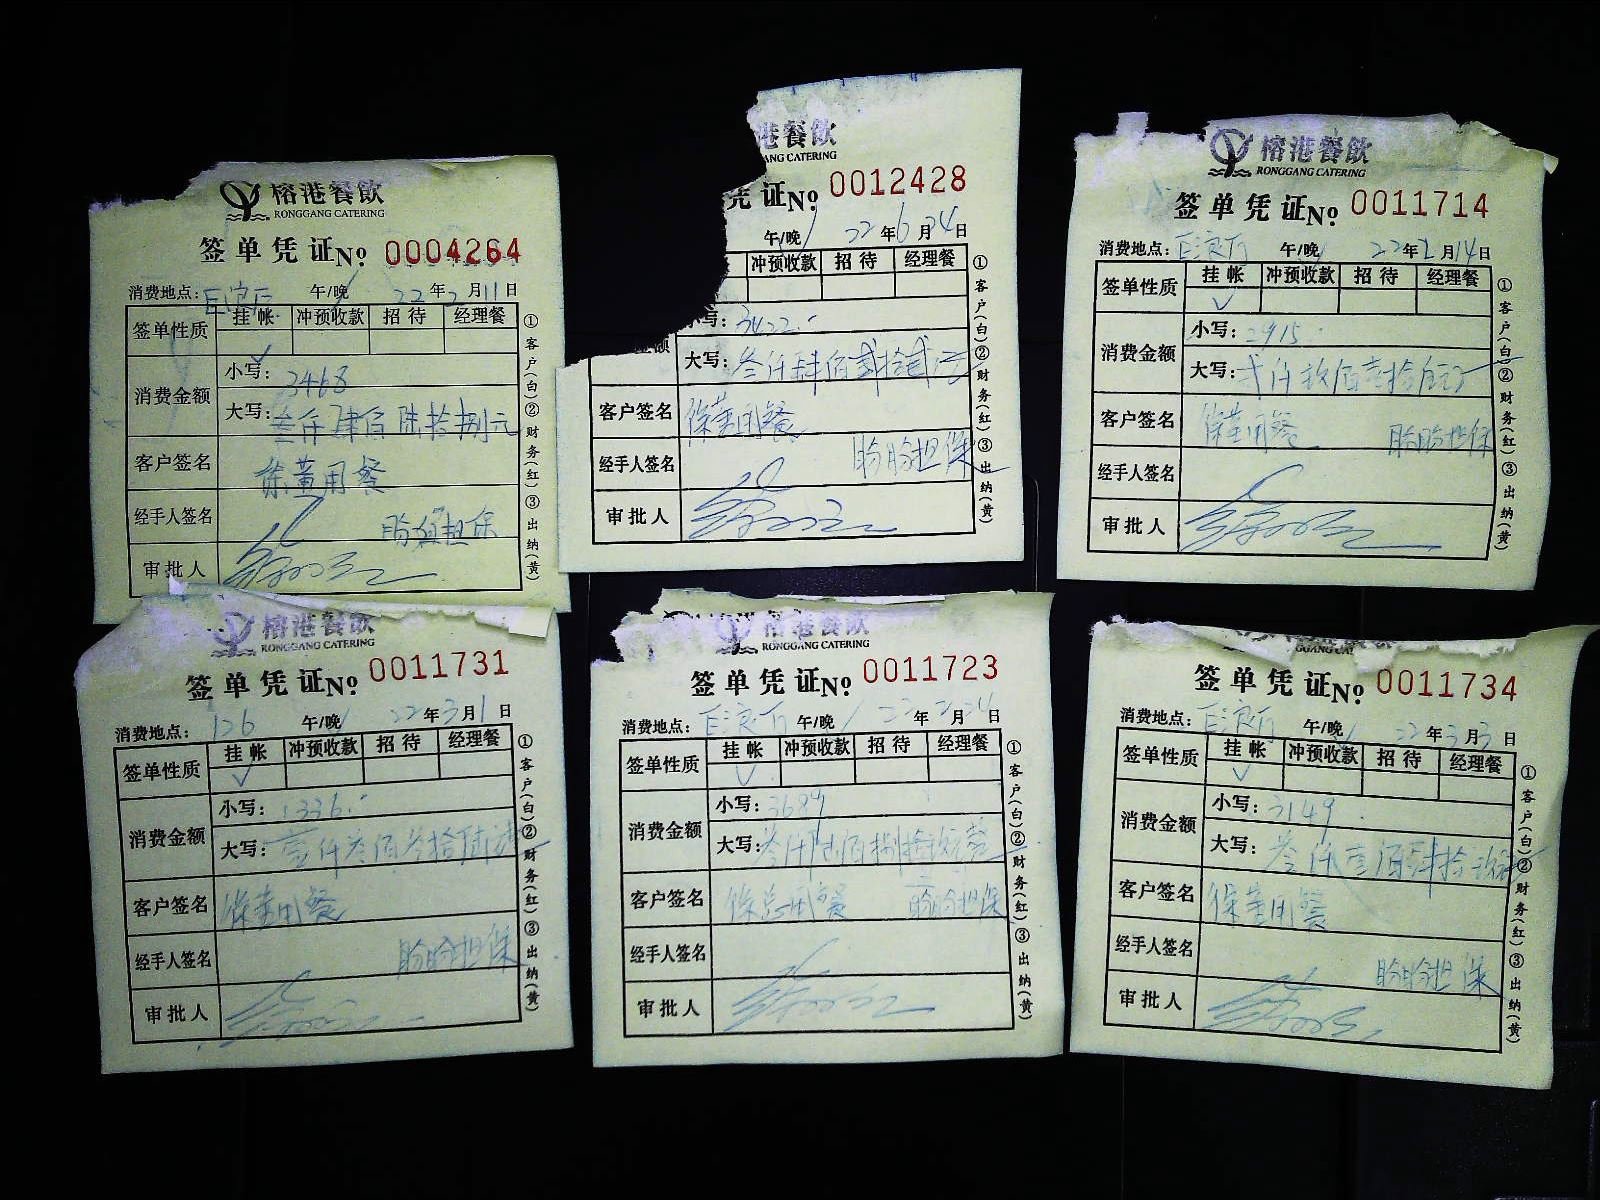 榕港餐飲
RONGGANG CATERING
签单凭证No 0004264
消费地点: 午/晚 22年2月11日
签单性质 挂帐 冲预收款 招待 经理餐
消费金额 小写: 3468
大写: 叁仟肆佰陆拾捌元
客户签名 徐董用餐
经手人签名 担保
审批人
①客户(白)②财务(红)③出纳(黄)
港餐飲
ANG CATERING
凭证No 0012428
午/晚 22年6月24日
冲预收款 招待 经理餐
小写: 3422.-
额 大写: 叁仟肆佰贰拾贰元
客户签名 徐董用餐
经手人签名 盼盼担保
审批人
①客户(白)②财务(红)③出纳(黄)
榕港餐飲
RONGGANG CATERING
签单凭证No 0011714
消费地点: 午/晚 22年2月14日
签单性质 挂帐 冲预收款 招待 经理餐
消费金额 小写: 2915
大写: 贰仟玖佰壹拾伍元
客户签名 徐董用餐
经手人签名 盼盼担保
审批人
①客户(白)②财务(红)③出纳(黄)
榕港餐飲
RONGGANG CATERING
签单凭证No 0011731
消费地点: 126 午/晚 22年3月1日
签单性质 挂帐 冲预收款 招待 经理餐
消费金额 小写: 1336.-
大写: 壹仟叁佰叁拾陆元
客户签名 徐董用餐
经手人签名 盼盼担保
审批人
①客户(白)②财务(红)③出纳(黄)
榕港餐飲
RONGGANG CATERING
签单凭证No 0011723
消费地点: 午/晚 22年2月24日
签单性质 挂帐 冲预收款 招待 经理餐
消费金额 小写: 3689
大写: 叁仟陆佰捌拾玖元
客户签名 徐总用餐 盼盼担保
经手人签名
审批人
①客户(白)②财务(红)③出纳(黄)
签单凭证No 0011734
消费地点: 午/晚 22年3月3日
签单性质 挂帐 冲预收款 招待 经理餐
消费金额 小写: 3149
大写: 叁仟壹佰肆拾玖
客户签名 徐董用餐
经手人签名 盼盼担保
审批人
①客户(白)②财务(红)③出纳(黄)